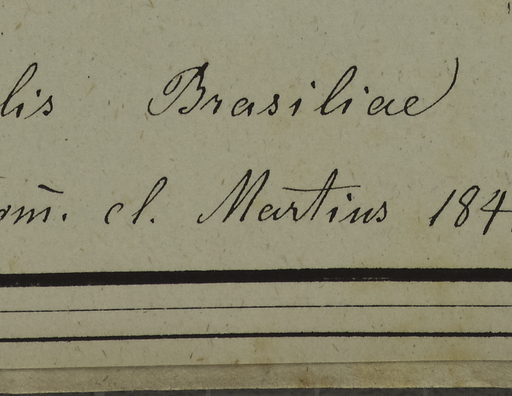 lis Brasiliae
om̄. cl. Martius 184